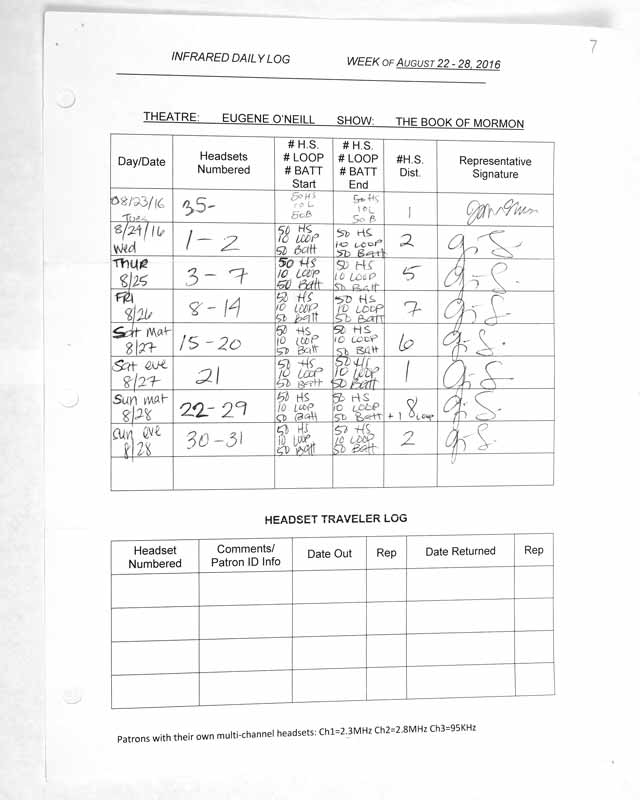 7
INFRARED DAILY LOG WEEK OF AUGUST 22 - 28, 2016
THEATRE: EUGENE O'NEILL SHOW: THE BOOK OF MORMON
Day/Date Headsets Numbered # H.S. # LOOP # BATT Start # H.S. # LOOP # BATT End #H.S. Dist. Representative Signature
08/23/16 Tues 35- 50 HS 10 L 50 B 50 HS 10 L 50 B 1
8/24/16 Wed 1-2 50 HS 10 LOOP 50 Batt 50 HS 10 LOOP 50 Batt 2
THUR 8/25 3-7 50 HS 10 LOOP 50 Batt 50 HS 10 LOOP 50 Batt 5
FRI 8/26 8-14 50 HS 10 LOOP 50 Batt 50 HS 10 LOOP 50 Batt 7
Sat mat 8/27 15-20 50 HS 10 LOOP 50 Batt 50 HS 10 LOOP 50 Batt 6
Sat eve 8/27 21 50 HS 10 LOOP 50 Batt 50 HS 10 LOOP 50 Batt 1
Sun mat 8/28 22-29 50 HS 10 LOOP 50 Batt 50 HS 10 LOOP 50 Batt 8 +1 Loop
Sun eve 8/28 30-31 50 HS 10 LOOP 50 Batt 50 HS 10 LOOP 50 Batt 2
HEADSET TRAVELER LOG
Headset Numbered Comments/ Patron ID Info Date Out Rep Date Returned Rep
Patrons with their own multi-channel headsets: Ch1=2.3MHz Ch2=2.8MHz Ch3=95KHz